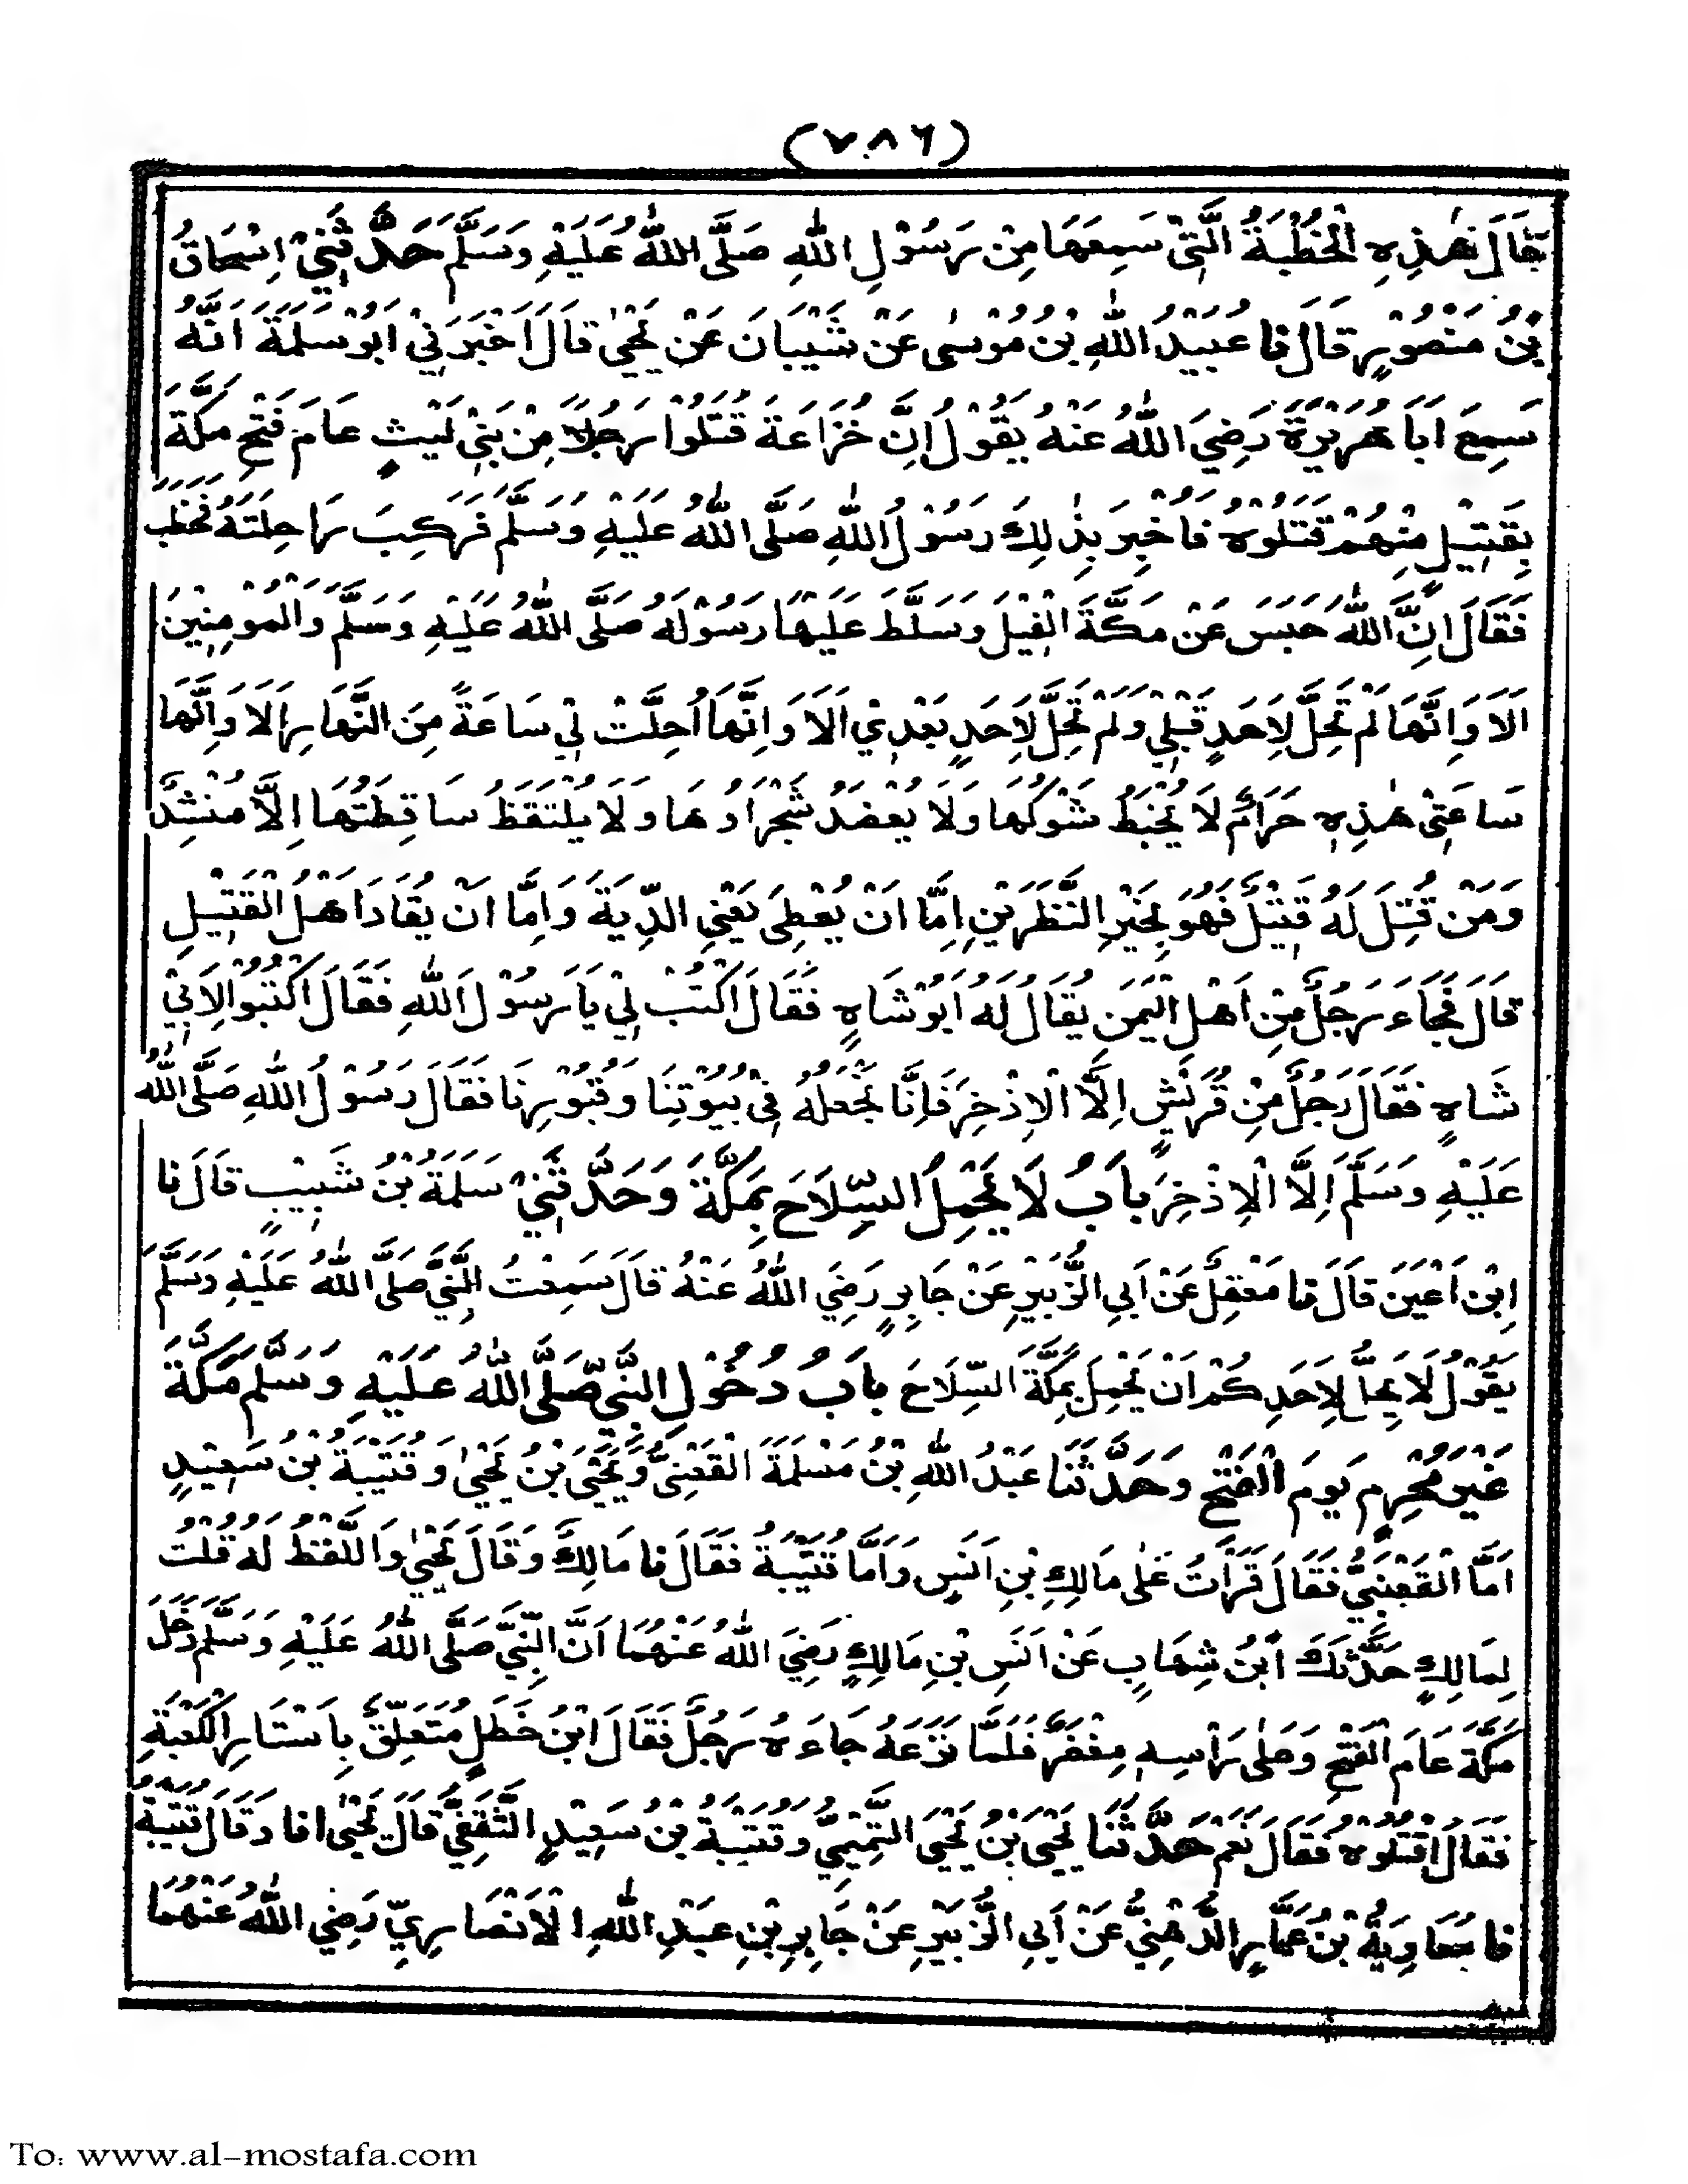 (٧٨٦)
قَالَ هٰذِهِ الْخُطْبَةُ الَّتِيْ سَمِعَهَا مِنْ رَسُوْلِ اللّٰهِ صَلَّى اللّٰهُ عَلَيْهِ وَسَلَّمَ حَدَّثَنِيْ اِسْحَاقُ
بْنُ مَنْصُوْرٍ قَالَ نَا عُبَيْدُ اللّٰهِ بْنُ مُوْسٰى عَنْ شَيْبَانَ عَنْ يَحْيٰى قَالَ اَخْبَرَنِيْ اَبُوْ سَلَمَةَ اَنَّهُ
سَمِعَ اَبَا هُرَيْرَةَ رَضِيَ اللّٰهُ عَنْهُ يَقُوْلُ اِنَّ خُزَاعَةَ قَتَلُوْا رَجُلًا مِنْ بَنِيْ لَيْثٍ عَامَ فَتْحِ مَكَّةَ
بِقَتِيْلٍ مِنْهُمْ قَتَلُوْهُ فَاُخْبِرَ بِذٰلِكَ رَسُوْلُ اللّٰهِ صَلَّى اللّٰهُ عَلَيْهِ وَسَلَّمَ فَرَكِبَ رَاحِلَتَهُ فَخَطَبَ
فَقَالَ اِنَّ اللّٰهَ حَبَسَ عَنْ مَكَّةَ الْفِيْلَ وَسَلَّطَ عَلَيْهَا رَسُوْلَهُ صَلَّى اللّٰهُ عَلَيْهِ وَسَلَّمَ وَالْمُؤْمِنِيْنَ
اَلَا وَاِنَّهَا لَمْ تَحِلَّ لِاَحَدٍ قَبْلِيْ وَلَمْ تَحِلَّ لِاَحَدٍ بَعْدِيْ اَلَا وَاِنَّهَا اُحِلَّتْ لِيْ سَاعَةً مِنَ النَّهَارِ اَلَا وَاِنَّهَا
سَاعَتِيْ هٰذِهِ حَرَامٌ لَا يُخْبَطُ شَوْكُهَا وَلَا يُعْضَدُ شَجْرَاؤُهَا وَلَا يُلْتَقَطُ سَاقِطَتُهَا اِلَّا مُنْشِدٌ
وَمَنْ قُتِلَ لَهُ قَتِيْلٌ فَهُوَ بِخَيْرِ النَّظَرَيْنِ اِمَّا اَنْ يُعْطٰى يَعْنِي الدِّيَةَ وَاِمَّا اَنْ يُقَادَ اَهْلُ الْقَتِيْلِ
قَالَ فَجَاءَ رَجُلٌ مِنْ اَهْلِ الْيَمَنِ يُقَالُ لَهُ اَبُوْ شَاهٍ فَقَالَ اكْتُبْ لِيْ يَا رَسُوْلَ اللّٰهِ فَقَالَ اكْتُبُوْا لِاَبِيْ
شَاهٍ فَقَالَ رَجُلٌ مِنْ قُرَيْشٍ اِلَّا الْاِذْخِرَ فَاِنَّا نَجْعَلُهُ فِيْ بُيُوْتِنَا وَقُبُوْرِنَا فَقَالَ رَسُوْلُ اللّٰهِ صَلَّى اللّٰهُ
عَلَيْهِ وَسَلَّمَ اِلَّا الْاِذْخِرَ بَابُ لَا يَحْمِلُ السِّلَاحَ بِمَكَّةَ وَحَدَّثَنِيْ سَلَمَةُ بْنُ شَبِيْبٍ قَالَ نَا
ابْنُ اَعْيَنَ قَالَ نَا مَعْقِلٌ عَنْ اَبِي الزُّبَيْرِ عَنْ جَابِرٍ رَضِيَ اللّٰهُ عَنْهُ قَالَ سَمِعْتُ النَّبِيَّ صَلَّى اللّٰهُ عَلَيْهِ وَسَلَّمَ
يَقُوْلُ لَا يَحِلُّ لِاَحَدِكُمْ اَنْ يَحْمِلَ بِمَكَّةَ السِّلَاحَ بَابُ دُخُوْلِ النَّبِيِّ صَلَّى اللّٰهُ عَلَيْهِ وَسَلَّمَ مَكَّةَ
غَيْرَ مُحْرِمٍ يَوْمَ الْفَتْحِ وَحَدَّثَنَا عَبْدُ اللّٰهِ بْنُ مَسْلَمَةَ الْقَعْنَبِيُّ وَيَحْيَى بْنُ يَحْيٰى وَقُتَيْبَةُ بْنُ سَعِيْدٍ
اَمَّا الْقَعْنَبِيُّ فَقَالَ قَرَأْتُ عَلٰى مَالِكِ بْنِ اَنَسٍ وَاَمَّا قُتَيْبَةُ فَقَالَ نَا مَالِكٌ وَقَالَ يَحْيٰى وَاللَّفْظُ لَهُ قُلْتُ
لِمَالِكٍ حَدَّثَكَ ابْنُ شِهَابٍ عَنْ اَنَسِ بْنِ مَالِكٍ رَضِيَ اللّٰهُ عَنْهُمَا اَنَّ النَّبِيَّ صَلَّى اللّٰهُ عَلَيْهِ وَسَلَّمَ دَخَلَ
مَكَّةَ عَامَ الْفَتْحِ وَعَلٰى رَأْسِهِ مِغْفَرٌ فَلَمَّا نَزَعَهُ جَاءَهُ رَجُلٌ فَقَالَ ابْنُ خَطَلٍ مُتَعَلِّقٌ بِاَسْتَارِ الْكَعْبَةِ
فَقَالَ اقْتُلُوْهُ فَقَالَ نَعَمْ حَدَّثَنَا يَحْيَى بْنُ يَحْيَى التَّمِيْمِيُّ وَقُتَيْبَةُ بْنُ سَعِيْدٍ الثَّقَفِيُّ قَالَ يَحْيٰى اَنَا وَقَالَ قُتَيْبَةُ
نَا مُعَاوِيَةُ بْنُ عَمَّارٍ الدُّهْنِيُّ عَنْ اَبِي الزُّبَيْرِ عَنْ جَابِرِ بْنِ عَبْدِ اللّٰهِ الْاَنْصَارِيِّ رَضِيَ اللّٰهُ عَنْهُمَا
To: www.al-mostafa.com